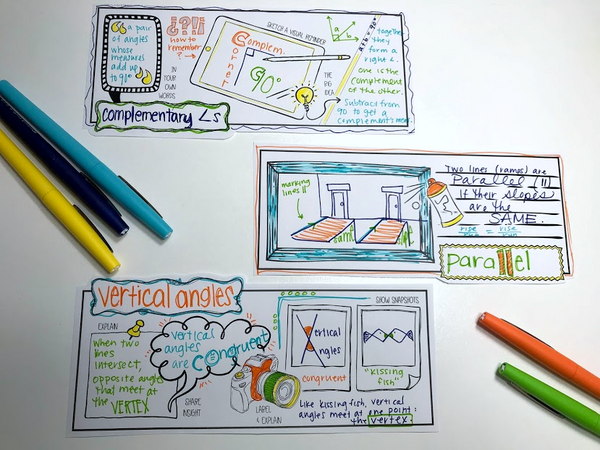 a pair
of angles
whose
measures
add up
to 90°
¿?!!
how to
remember?
IN
YOUR OWN
WORDS
SKETCH A VISUAL REMINDER
Complem.
Corner
90°
THE
BIG
IDEA
a
b
together
they
form a
right ∠.
one is the
complement
of the other.
subtract from
90 to get a
complement's
complementary ∠s
marking
lines ||
same
Two lines (ramps) are
Parallel (||)
if their slopes
are the
SAME.
rise/run = rise/run
parallel
vertical angles
EXPLAIN
when two
lines
intersect,
opposite angles
that meet at
the VERTEX
vertical
angles
are Congruent
SHARE
INSIGHT
LABEL
& EXPLAIN
SHOW SNAPSHOTS
vertical
Angles
congruent
"kissing
fish"
Like kissing fish, vertical
angles meet at one point:
the vertex.